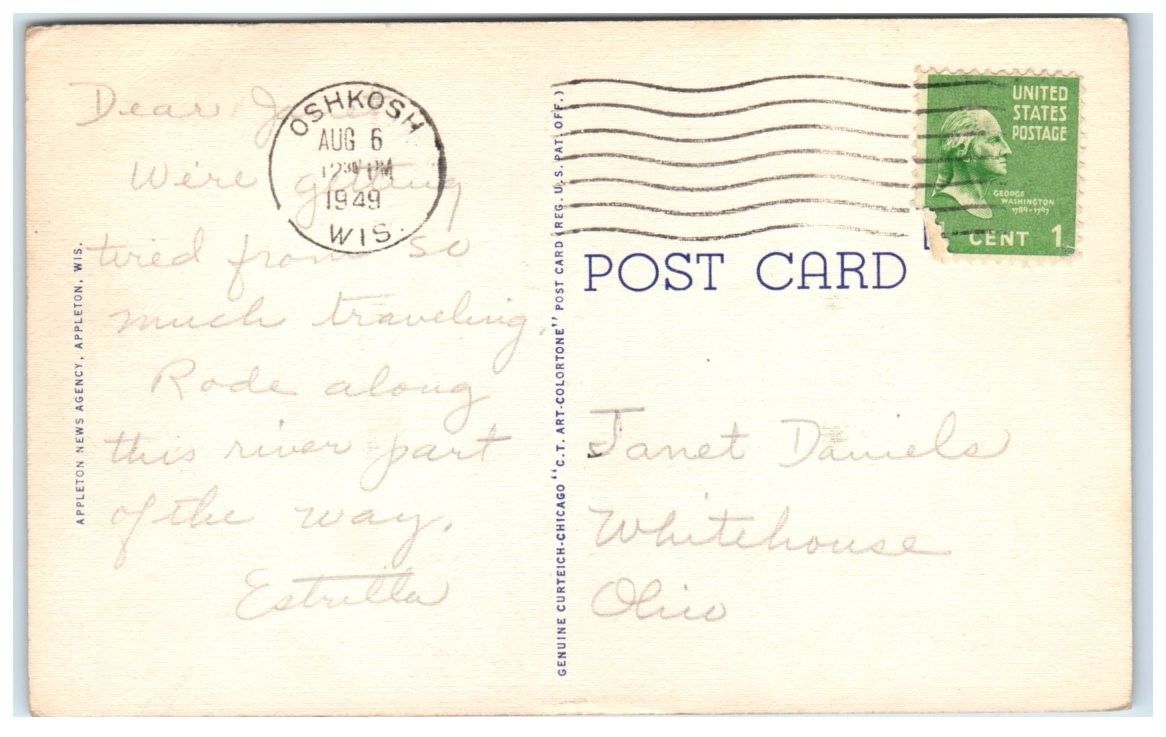 Dear
We're getting
tired from so
much traveling.
Rode along
this river part
of the way.
Estrilla
OSHKOSH
AUG 6
PM
1949
WIS.
UNITED
STATES
POSTAGE
GEORGE
WASHINGTON
1789-1797
CENT 1
POST CARD
Janet Daniels
Whitehouse
Ohio
APPLETON NEWS AGENCY, APPLETON, WIS.
GENUINE CURTEICH-CHICAGO "C.T. ART-COLORTONE" POST CARD (REG. U.S. PAT. OFF.)